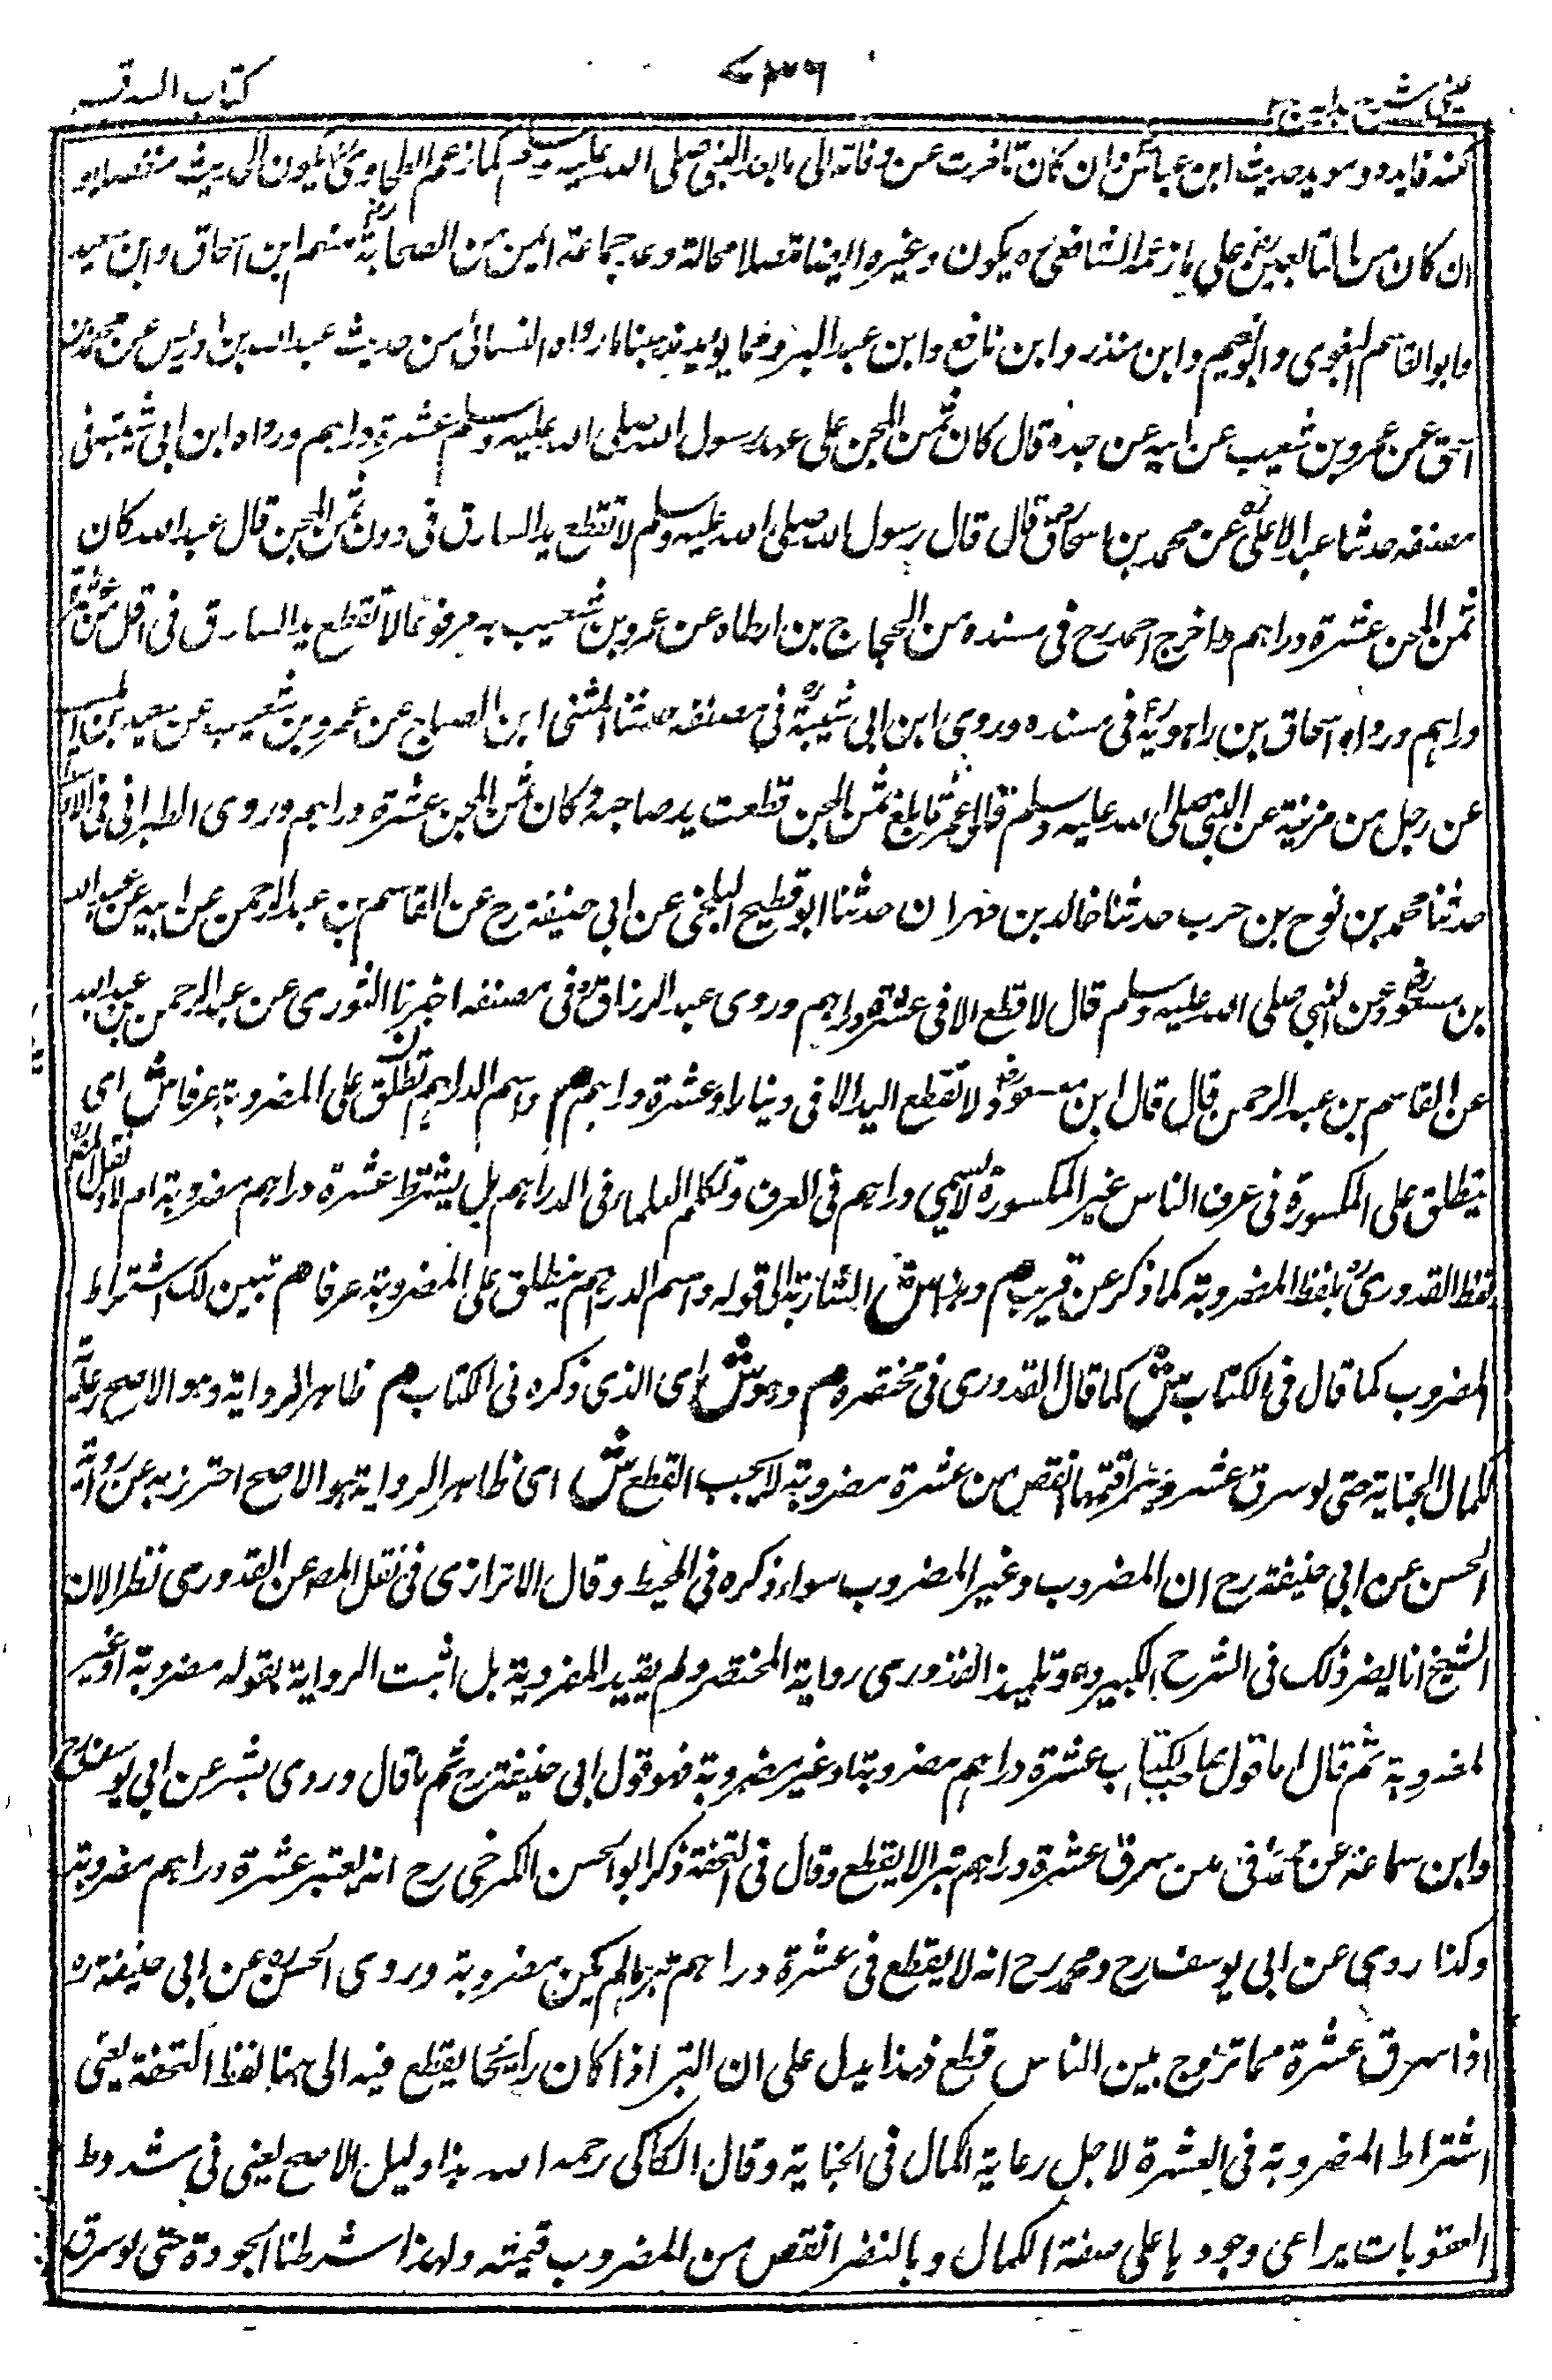 عینی شرح ہدایہ ج ٢
كتاب السرقة
ان كان من التابعين على ما زعمه الشافعي يكون وغيره ايضا متصلا محالة وعد جماعة ايمن من الصحابة منهم ابن اسحاق وابن سعيد
وابو القاسم البغوى وابو نعيم وابن منذر وابن نافع وابن عبد البر ومما يويد مذهبنا ما رواه النسائى من حديث عبد الله بن ادريس عن محمد بن
اسحق عن عمرو بن شعيب عن ابيه عن جده قال كان ثمن المجن على عهد رسول الله صلى الله عليه وسلم عشرة دراهم ورواه ابن ابى شيبة فى
مصنفه حدثنا عبد الاعلى عن محمد بن اسحاق قال قال رسول الله صلى الله عليه وسلم لا تقطع يد السارق فى دون ثمن المجن قال عبد الله كان
ثمن المجن عشرة دراهم واخرج احمد رح فى مسنده من الحجاج بن ارطاه عن عمرو بن شعيب به مرفوعا لا تقطع يد السارق فى اقل من عشرة
دراهم ورواه اسحاق بن راهويه فى مسنده وروى ابن ابى شيبة فى مصنفه حدثنا المثنى ابن الصباح عن عمرو بن شعيب عن سعيد بن المسيب
عن رجل من مزنية عن النبى صلى الله عليه وسلم قال ما بلغ ثمن المجن قطعت يد صاحبه وكان ثمن المجن عشرة دراهم وروى الطبرانى فى الاوسط
حدثنا محمد بن نوح بن حرب حدثنا خالد بن مهران حدثنا ابو مطيع البلخى عن ابى حنيفة رح عن القاسم بن عبد الرحمن عن ابيه عن عبد الله
بن مسعود عن النبى صلى الله عليه وسلم قال لا قطع الا فى عشرة دراهم وروى عبد الرزاق فى مصنفه اخبرنا الثورى عن عبد الرحمن بن عبد الله
عن القاسم بن عبد الرحمن قال قال ابن مسعود لا تقطع اليد الا فى دينار او عشرة دراهم م واسم الدراهم تطلق على المضروبة عرفا ش اى
ينطلق على المكسورة فى عرف الناس غير المكسورة لا يسمى دراهم فى العرف وتكلم العلماء فى الدراهم بل يشترط عشرة دراهم مضروبة ام لا ونقل المصنف
لفظ القدورى بلفظ المضروبة كما ذكر عن قريب م وبهذا ش اشارة الى قوله واسم الدراهم ينطلق على المضروبة عرفا م تبين لك اشتراط
المضروب كما قال فى الكتاب ش كما قال القدورى فى مختصره م وهو ش اى الذى ذكره فى الكتاب م ظاهر الرواية وهو الاصح رعاية
لكمال الجناية حتى لو سرق عشرة تبرا قيمتها انقص من عشرة مضروبة لا يجب القطع ش اى ظاهر الرواية هو الاصح احترز به عن رواية
الحسن عن ابى حنيفة رح ان المضروب وغير المضروب سواء ذكره فى المحيط وقال الاترازى فى نقل المصه عن القدورى نظر الان
الشيخ ابا نصر ذكر فى الشرح الكبير وهو تلميذ القدورى رواية المختصر ولم يقيد المضروبة بل اثبت الرواية بقوله مضروبة او غير
مضروبة ثم قال اما قول صاحب الكتاب عشرة دراهم مضروبة او غير مضروبة فهو قول ابى حنيفة رح ثم قال وروى بشر عن ابى يوسف رح
وابن سماعة عن محمد فى من سرق عشرة دراهم تبر الا يقطع وقال فى التحفة ذكر ابو الحسن الكرخى رح انه يعتبر عشرة دراهم مضروبة
وكذا روى عن ابى يوسف رح ومحمد رح انه لا يقطع فى عشرة دراهم تبر ما لم يكن مضروبة وروى الحسن عن ابى حنيفة ره
اذا سرق عشرة مما تروج بين الناس قطع فهذا يدل على ان التبر اذا كان رايجا يقطع فيه الى هنا لفظ التحفة يعنى
اشتراط المضروبة فى العشرة لاجل رعاية الكمال فى الجناية وقال الكاكى رحمه الله هذا دليل الاصح يعنى فى شروط
العقوبات يراعى وجودها على صفة الكمال وبالنضر انقص من المضروب قيمته ولهذا شرطنا الجودة حتى لو سرق